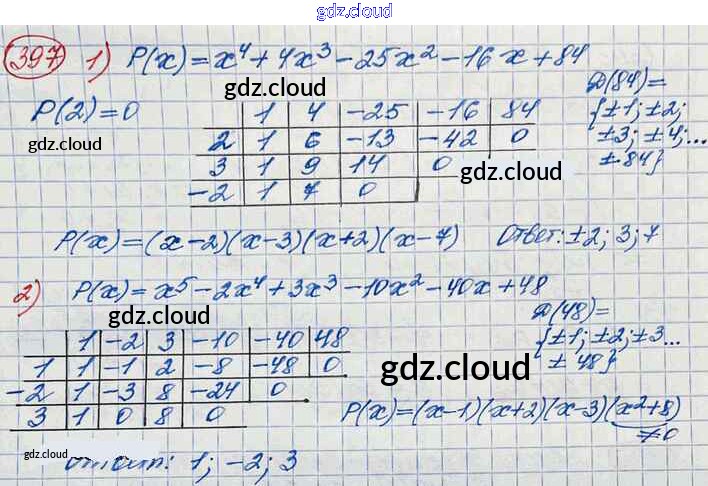 gdz.cloud
397 1) P(x) = x⁴ + 4x³ - 25x² - 16x + 84
gdz.cloud
P(2) = 0
Д(84) =
{±1; ±2;
±3; ±4; ...
± 84}
gdz.cloud
1 4 -25 -16 84
2 1 6 -13 -42 0
3 1 9 14 0
-2 1 7 0
gdz.cloud
P(x) = (x-2)(x-3)(x+2)(x-7) Ответ: ±2; 3; 7
2) P(x) = x⁵ - 2x⁴ + 3x³ - 10x² - 40x + 48
Д(48) =
{±1; ±2; ±3...
± 48}
gdz.cloud
1 -2 3 -10 -40 48
1 1 -1 2 -8 -48 0
-2 1 -3 8 -24 0
3 1 0 8 0
gdz.cloud
P(x) = (x-1)(x+2)(x-3)(x²+8)
≠0
gdz.cloud
Ответ: 1; -2; 3